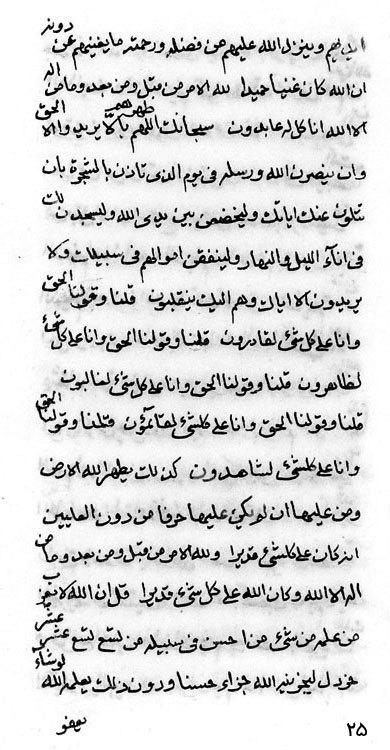 ايديهم وينزل الله عليهم من فضله ورحمته ما يغنيهم عن دونه
ان الله كان غنيا حميدا لله الامر من قبل ومن بعد وما من اله
الا الله انا كل له عابدون سبحانك اللهم بالا يريد والا الحق
وان ينصرن الله ورسله فى يوم الذى تاذن بالشجرة بان
يتلون عنك اياتك وليخضعن بين يدى الله وليسجدن لك
فى اناء الليل والنهار ولينفقن اموالهم فى سبيلك ولا
يريدون الا اياك وهم اليك ينقلبون قلنا وقولنا الحق
وانا على كل شئ لقادرون قلنا وقولنا الحق وانا على كل شئ
لظاهرون قلنا وقولنا الحق وانا على كل شئ لغالبون
قلنا وقولنا الحق وانا على كلشئ لقائمون قلنا وقولنا الحق
وانا على كلشئ لشاهدون كذلك يطهر الله الارض
ومن عليها ان لو يكن عليها حرفا من دون العليين
انه كان على كلشئ قديرا ولله الامر من قبل ومن بعد وما من
اله الا الله وكان الله على كل شئ قديرا قل ان الله لا يعزب
من علمه من شئ من احسن فى سبيله من تسع تسع عشر عشر
خردل ليجزينه الله جزاء حسنا ودون ذلك يعلمه الله لو شاء
يعفو
٢٥